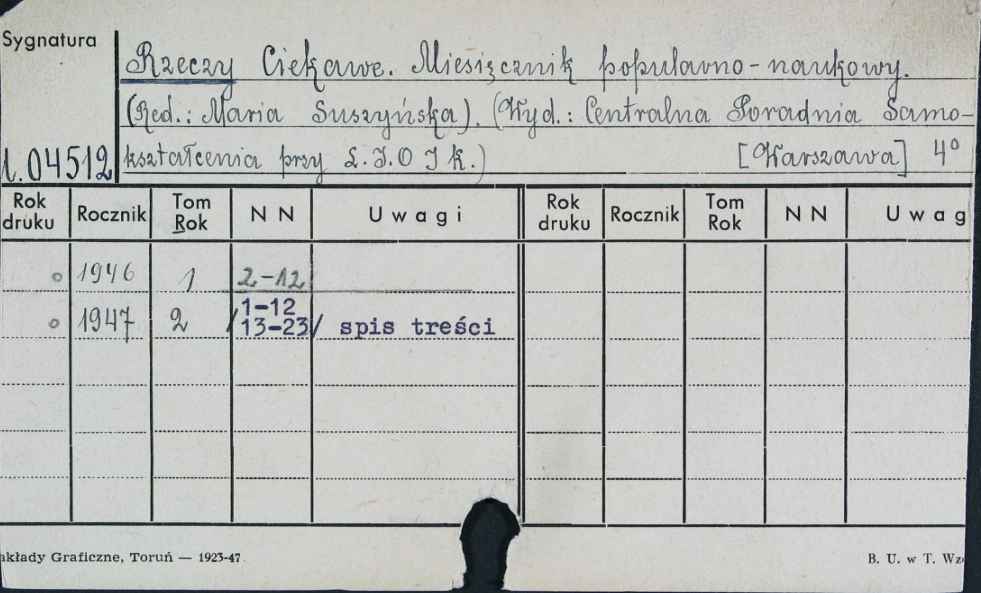 Sygnatura
Rzeczy Ciekawe. Miesięcznik popularno-naukowy.
(Red.: Maria Suszyńska). (Wyd.: Centralna Poradnia Samo-
04512 kształcenia przy L.I.O I K.) [Warszawa] 4°
Rok druku Rocznik Tom Rok N N U w a g i Rok druku Rocznik Tom Rok N N U w a g
o 1946 1 2-12
o 1947 2 /1-12 13-23/ spis treści
akłady Graficzne, Toruń — 1923-47 B. U. w T. Wz